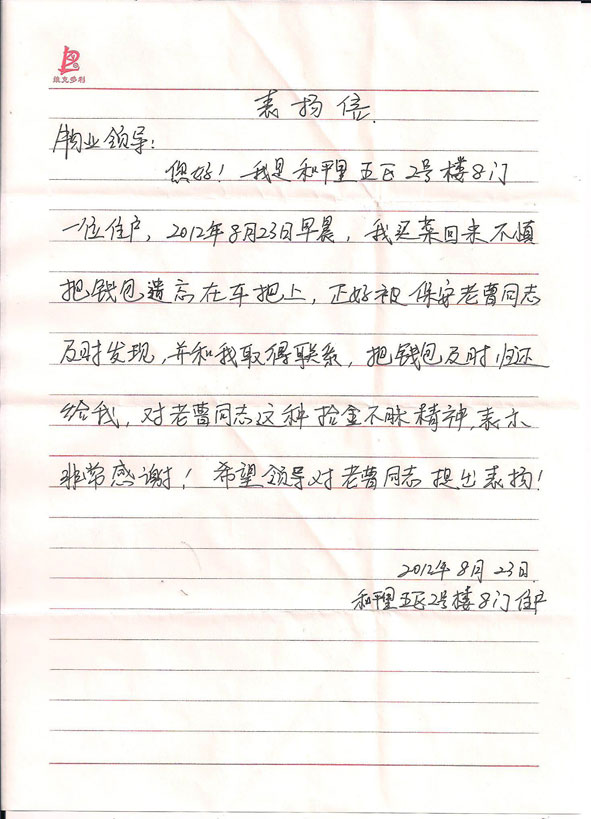 维克多利
表扬信.
物业领导:
您好! 我是和平里五区2号楼8门
一位住户, 2012年8月23日早晨, 我买菜回来不慎
把钱包遗忘在车把上, 正好被保安老曹同志
及时发现, 并和我取得联系, 把钱包及时归还
给我, 对老曹同志这种拾金不昧精神, 表示
非常感谢! 希望领导对老曹同志提出表扬!
2012年8月23日.
和平里五区2号楼8门住户